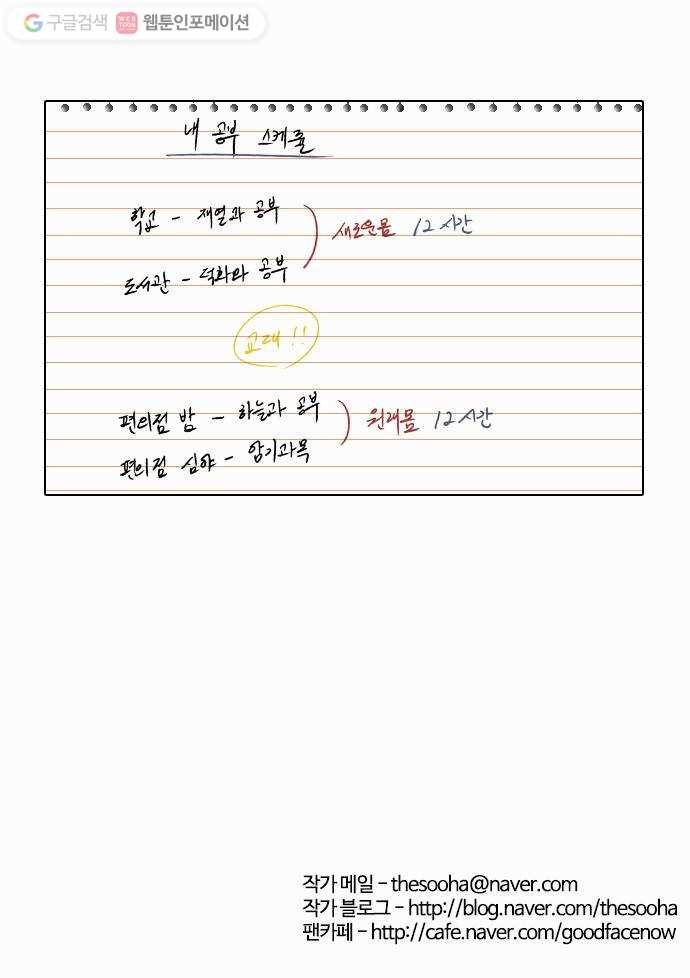 구글검색 웹툰인포메이션
내 공부 스케줄
학교 - 재열과 공부
새로운몸 12시간
도서관 - 덕화와 공부
교대!!
편의점 밤 - 하늘과 공부
원래몸 12시간
편의점 심야 - 암기과목
작가 메일 - thesooha@naver.com
작가 블로그 - http://blog.naver.com/thesooha
팬카페 - http://cafe.naver.com/goodfacenow